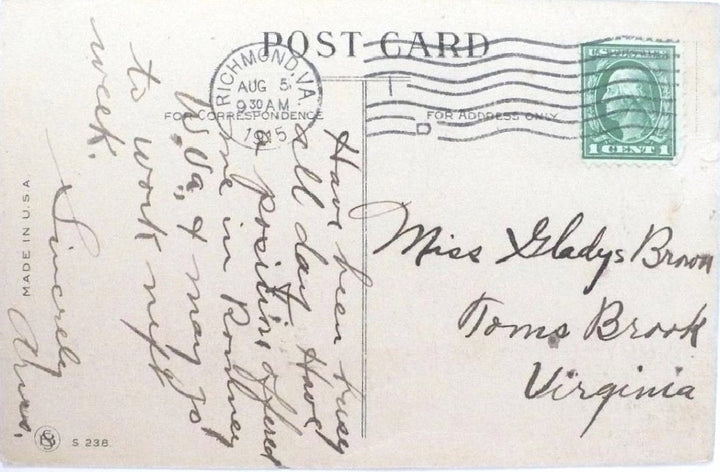 POST CARD
RICHMOND, VA.
AUG 5
9 30 AM
1915
FOR CORRESPONDENCE
FOR ADDRESS ONLY
U.S. POSTAGE
1 CENT 1
Have been busy
all day. Have
a position offered
me in Romney
W.Va., & may go
to work next
week.
Sincerely
Miss Gladys Brown
Toms Brook
Virginia
MADE IN U.S.A
S 238